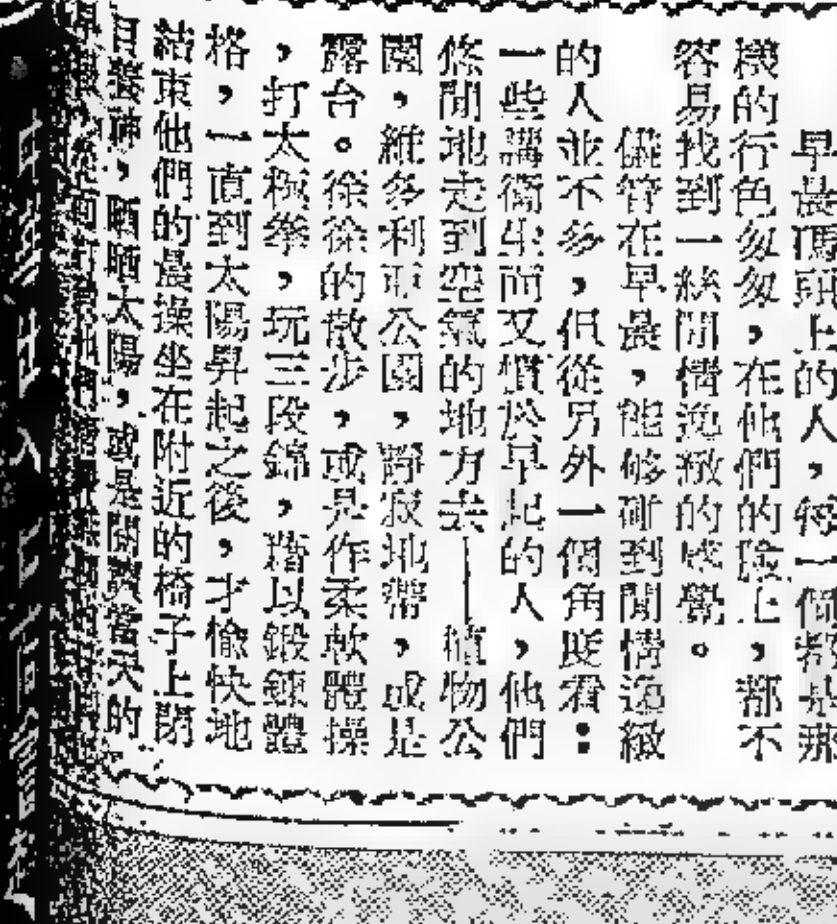 早晨碼頭上的人，每一個都是那
樣的行色匆匆，在他們的臉上，都不
容易找到一絲閒情逸緻的感覺。
儘管在早晨，能够碰到閒情逸緻
的人並不多，但從另外一個角度看：
一些講衞生而又慣於早起的人，他們
悠閒地走到空氣的地方去——植物公
園，維多利亞公園，靜寂地帶，或是
露台。徐徐的散步，或是作柔軟體操
，打太極拳，玩三段錦，藉以鍛鍊體
格，一直到太陽昇起之後，才愉快地
結束他們的晨操坐在附近的椅子上閉
目養神，晒晒太陽，或是開讀當天的